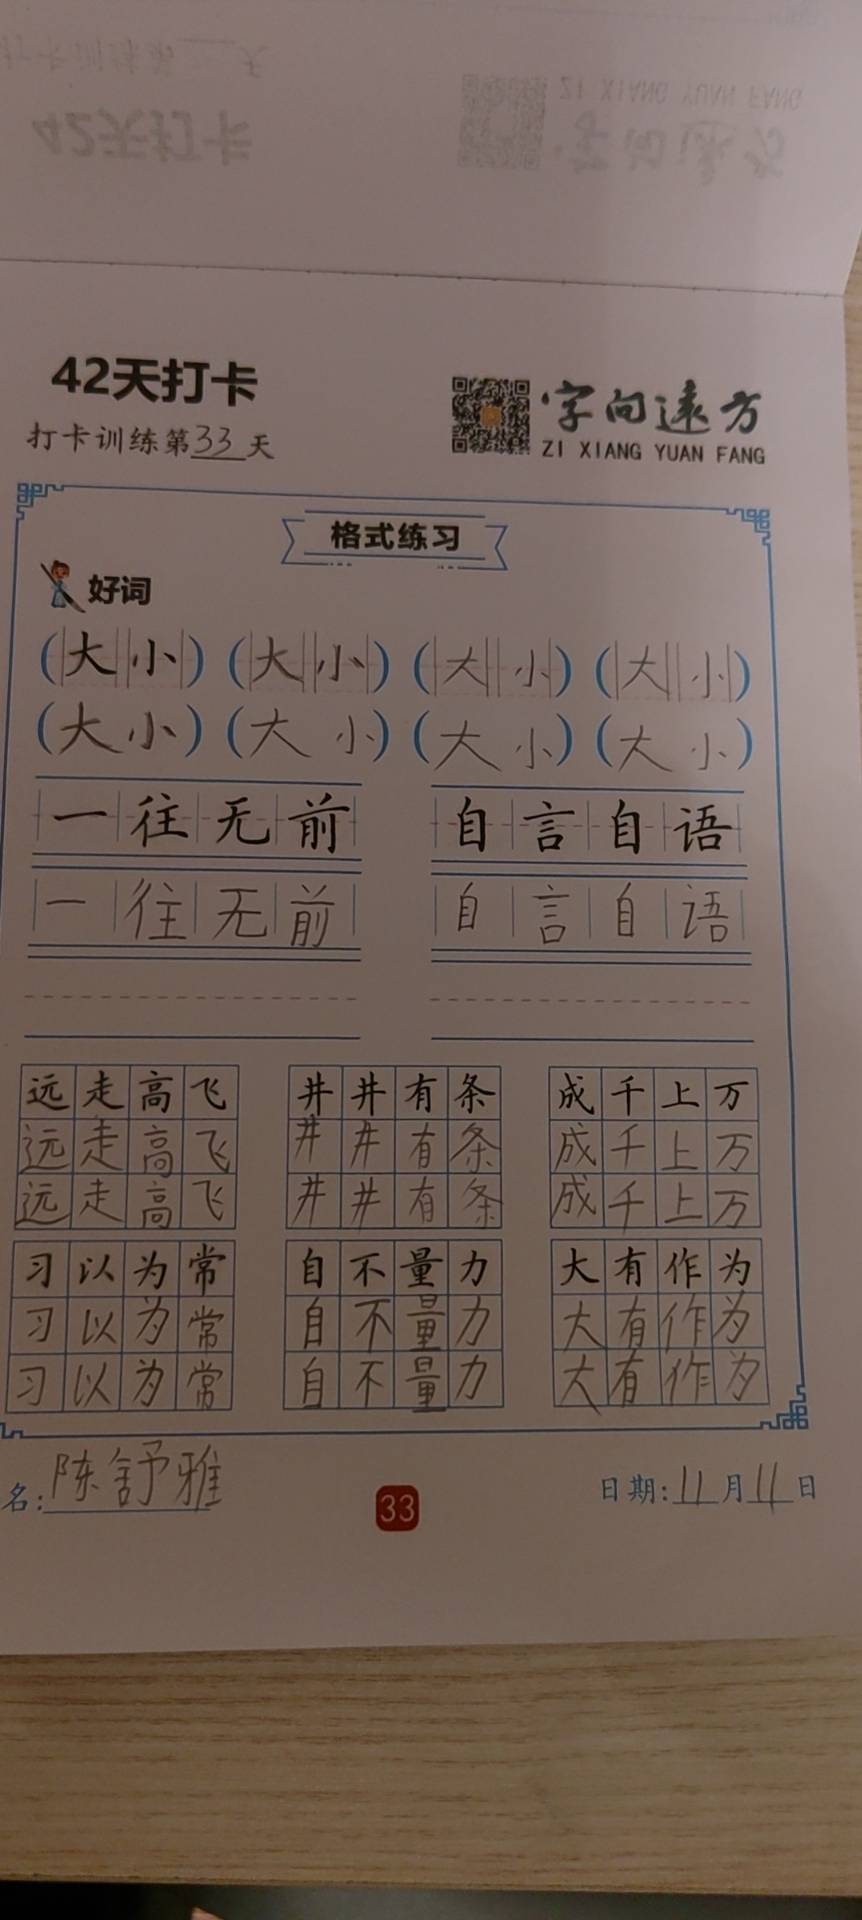 42天打卡
字向远方
打卡训练第33天
ZI XIANG YUAN FANG
格式练习
好词
(大小) (大小) (大小) (大小)
(大小) (大小) (大小) (大小)
一往无前 自言自语
一往无前 自言自语
远走高飞 井井有条 成千上万
远走高飞 井井有条 成千上万
远走高飞 井井有条 成千上万
习以为常 自不量力 大有作为
习以为常 自不量力 大有作为
习以为常 自不量力 大有作为
名:陈舒雅
33
日期:11月11日